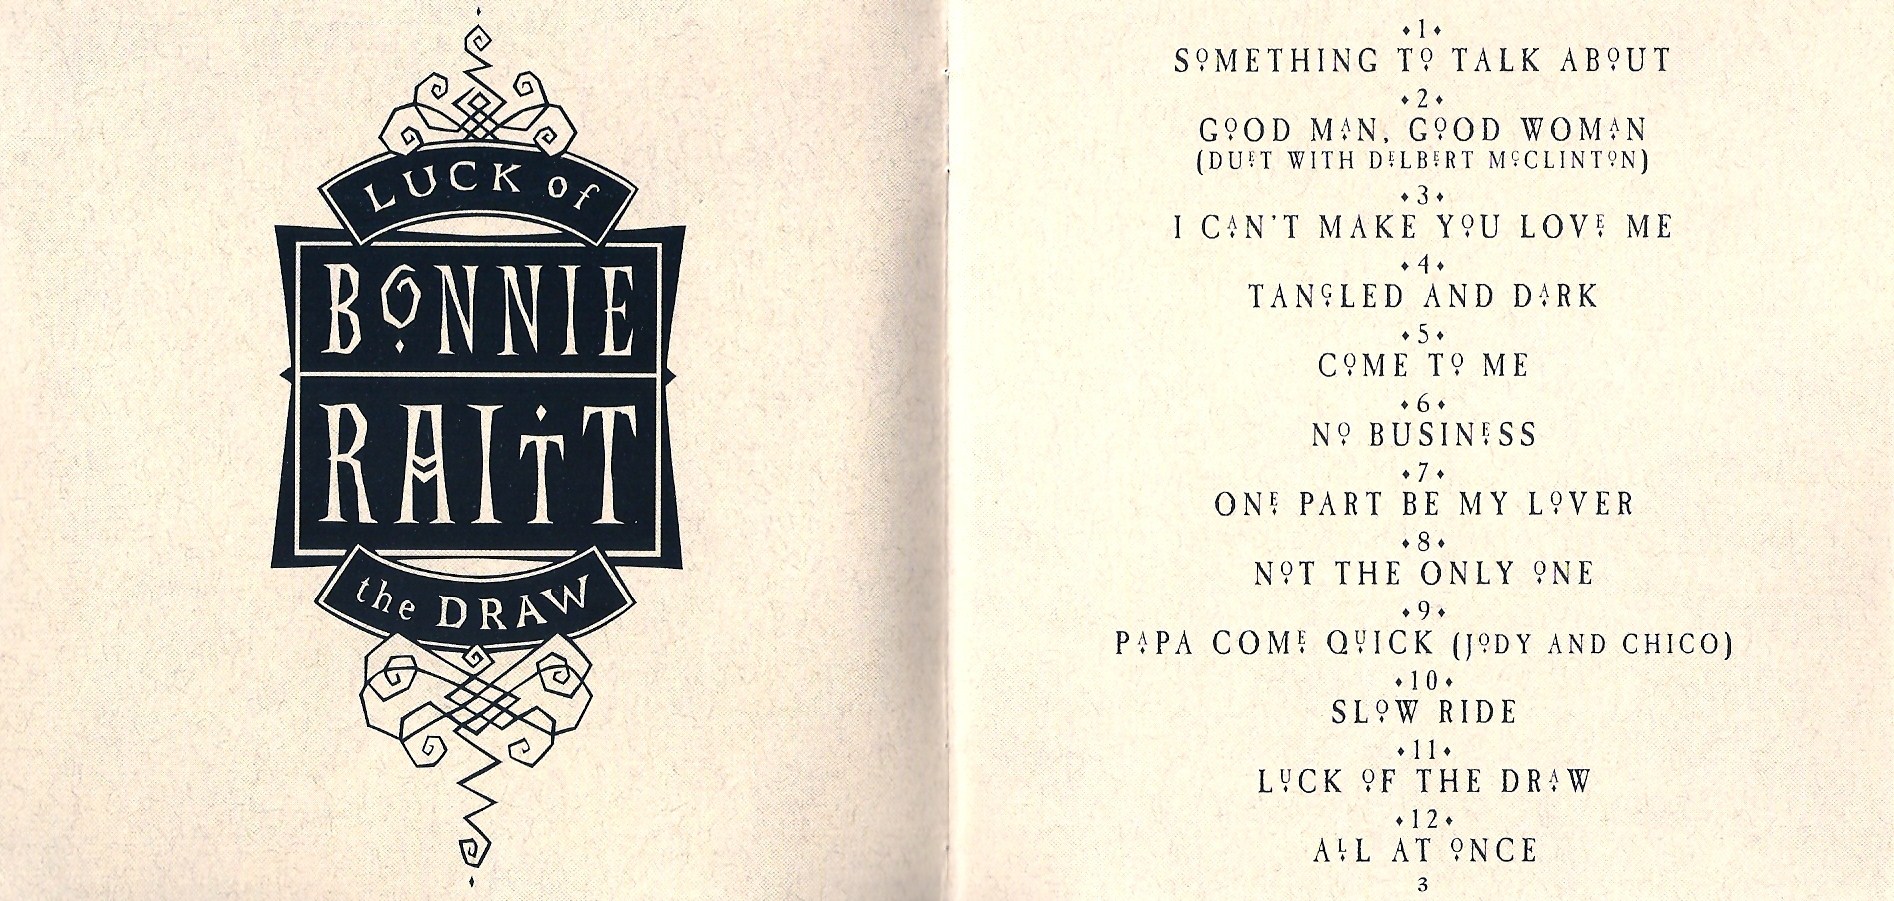 LUCK of
BONNIE
RAITT
the DRAW
•1•
SOMETHING TO TALK ABOUT
•2•
GOOD MAN, GOOD WOMAN
(DUET WITH DELBERT McCLINTON)
•3•
I CAN'T MAKE YOU LOVE ME
•4•
TANGLED AND DARK
•5•
COME TO ME
•6•
NO BUSINESS
•7•
ONE PART BE MY LOVER
•8•
NOT THE ONLY ONE
•9•
PAPA COME QUICK (JODY AND CHICO)
•10•
SLOW RIDE
•11•
LUCK OF THE DRAW
•12•
ALL AT ONCE
3